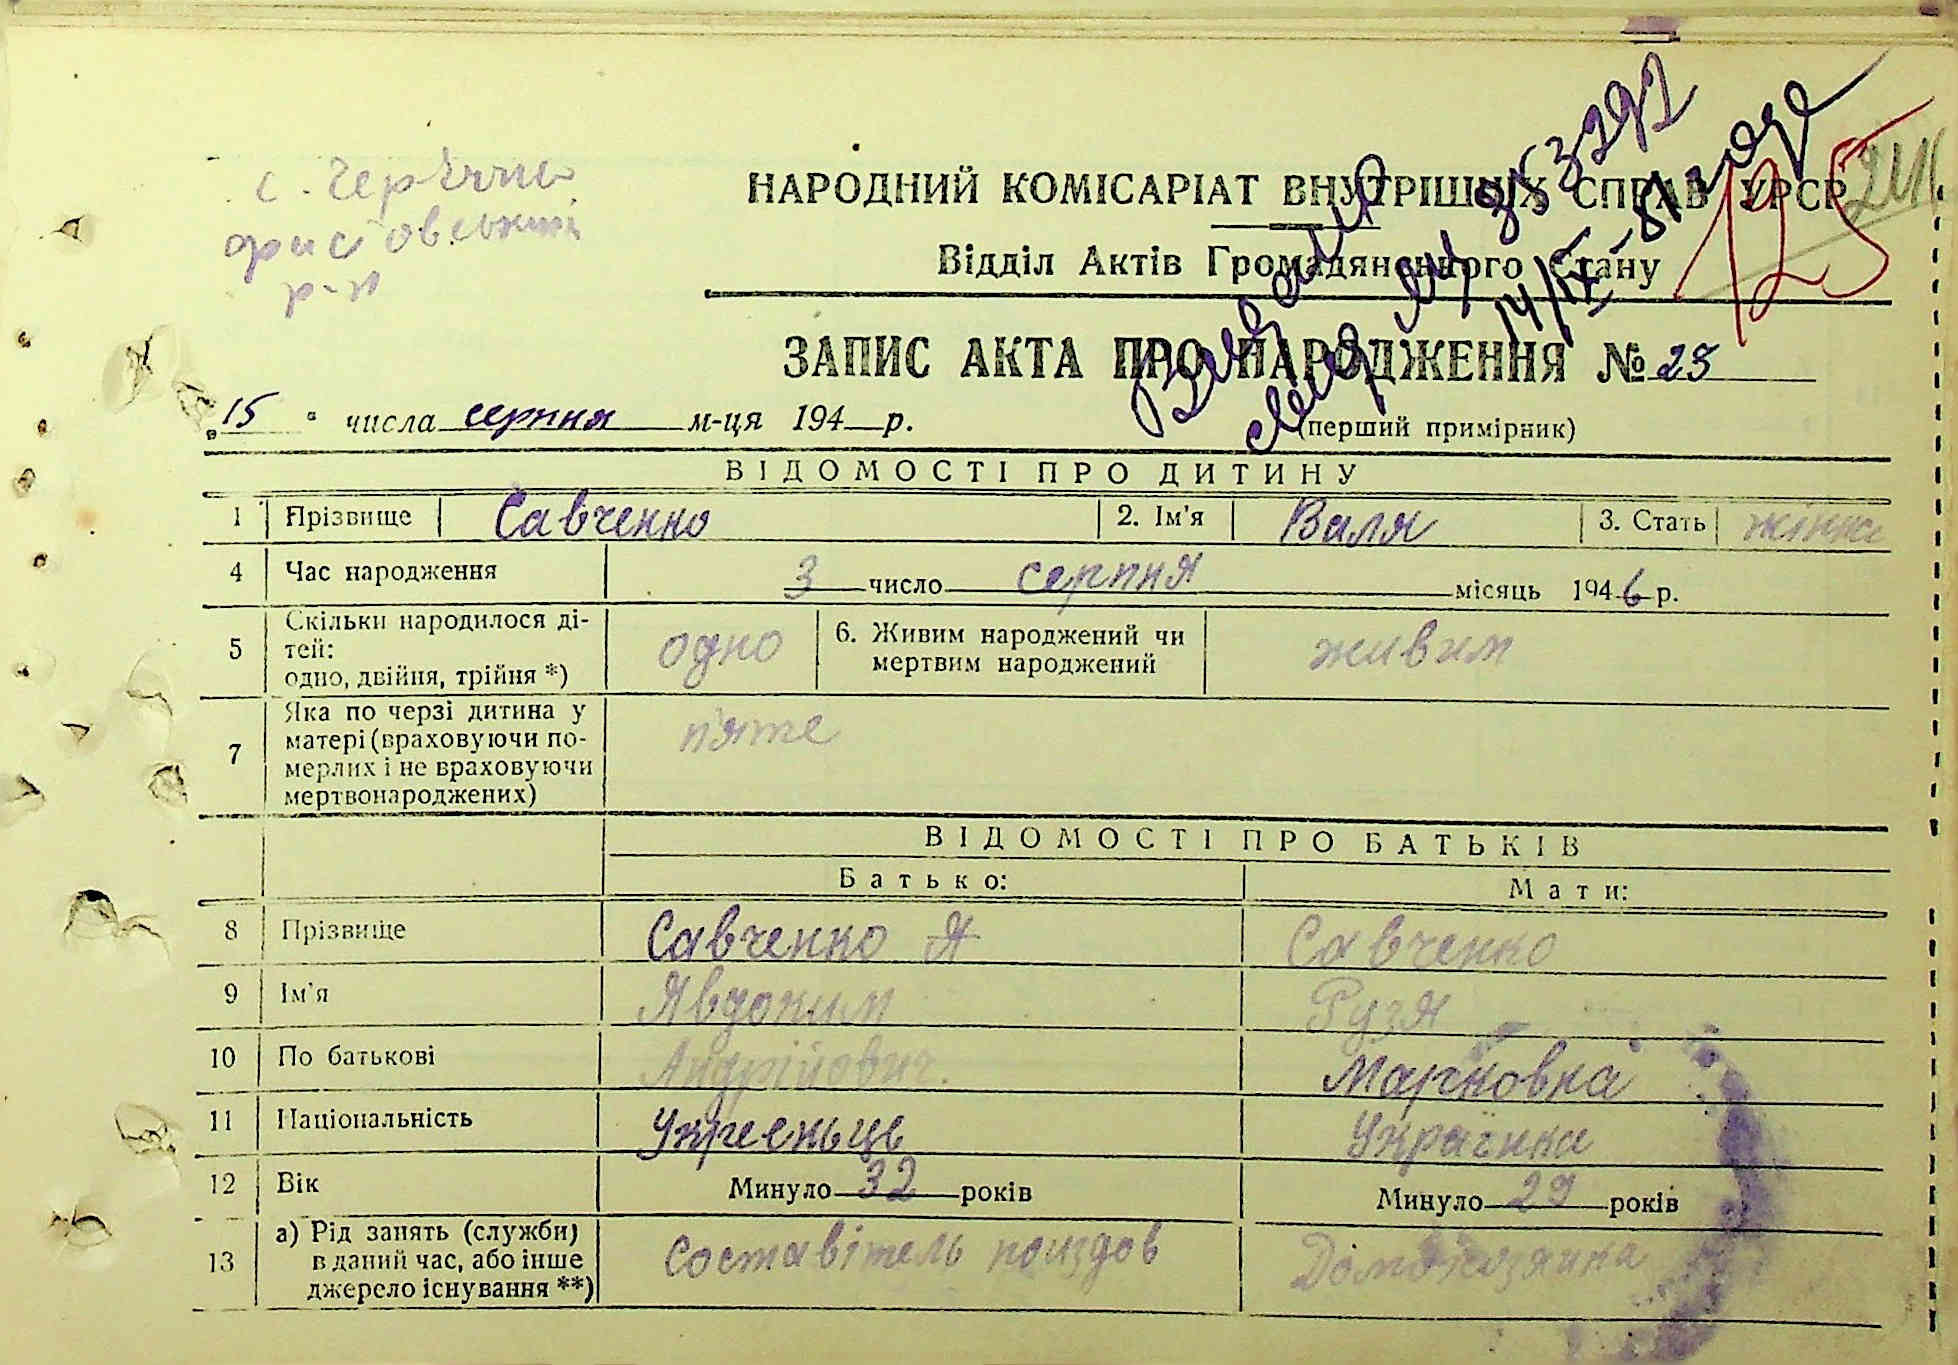 НАРОДНИЙ КОМІСАРІАТ ВНУТРІШНІХ СПРАВ УРСР
125
Відділ Актів Громадянського Стану
ЗАПИС АКТА ПРО НАРОДЖЕННЯ № 25
14/IX-81
"15" числа серпня м-ця 194 р.
(перший примірник)
ВІДОМОСТІ ПРО ДИТИНУ
1 Прізвище Савченко 2. Ім'я Валя 3. Стать жіноч
4 Час народження 3 число серпня місяць 1946 р.
5 Скільки народилося ді-
тей:
одно, двійня, трійня *) одно 6. Живим народжений чи
мертвим народжений живим
7 Яка по черзі дитина у
матері (враховуючи по-
мерлих і не враховуючи
мертвонароджених) п'яте
ВІДОМОСТІ ПРО БАТЬКІВ
Батько: Мати:
8 Прізвище Савченко Я Савченко
9 Ім'я Явдоким Рузя
10 По батькові Андрійович. Марковна
11 Національність Укрееньць Українка
12 Вік Минуло 32 років Минуло 29 років
13 а) Рід занять (служби)
в даний час, або інше
джерело існування **) Составітель поиздов Домохозяика